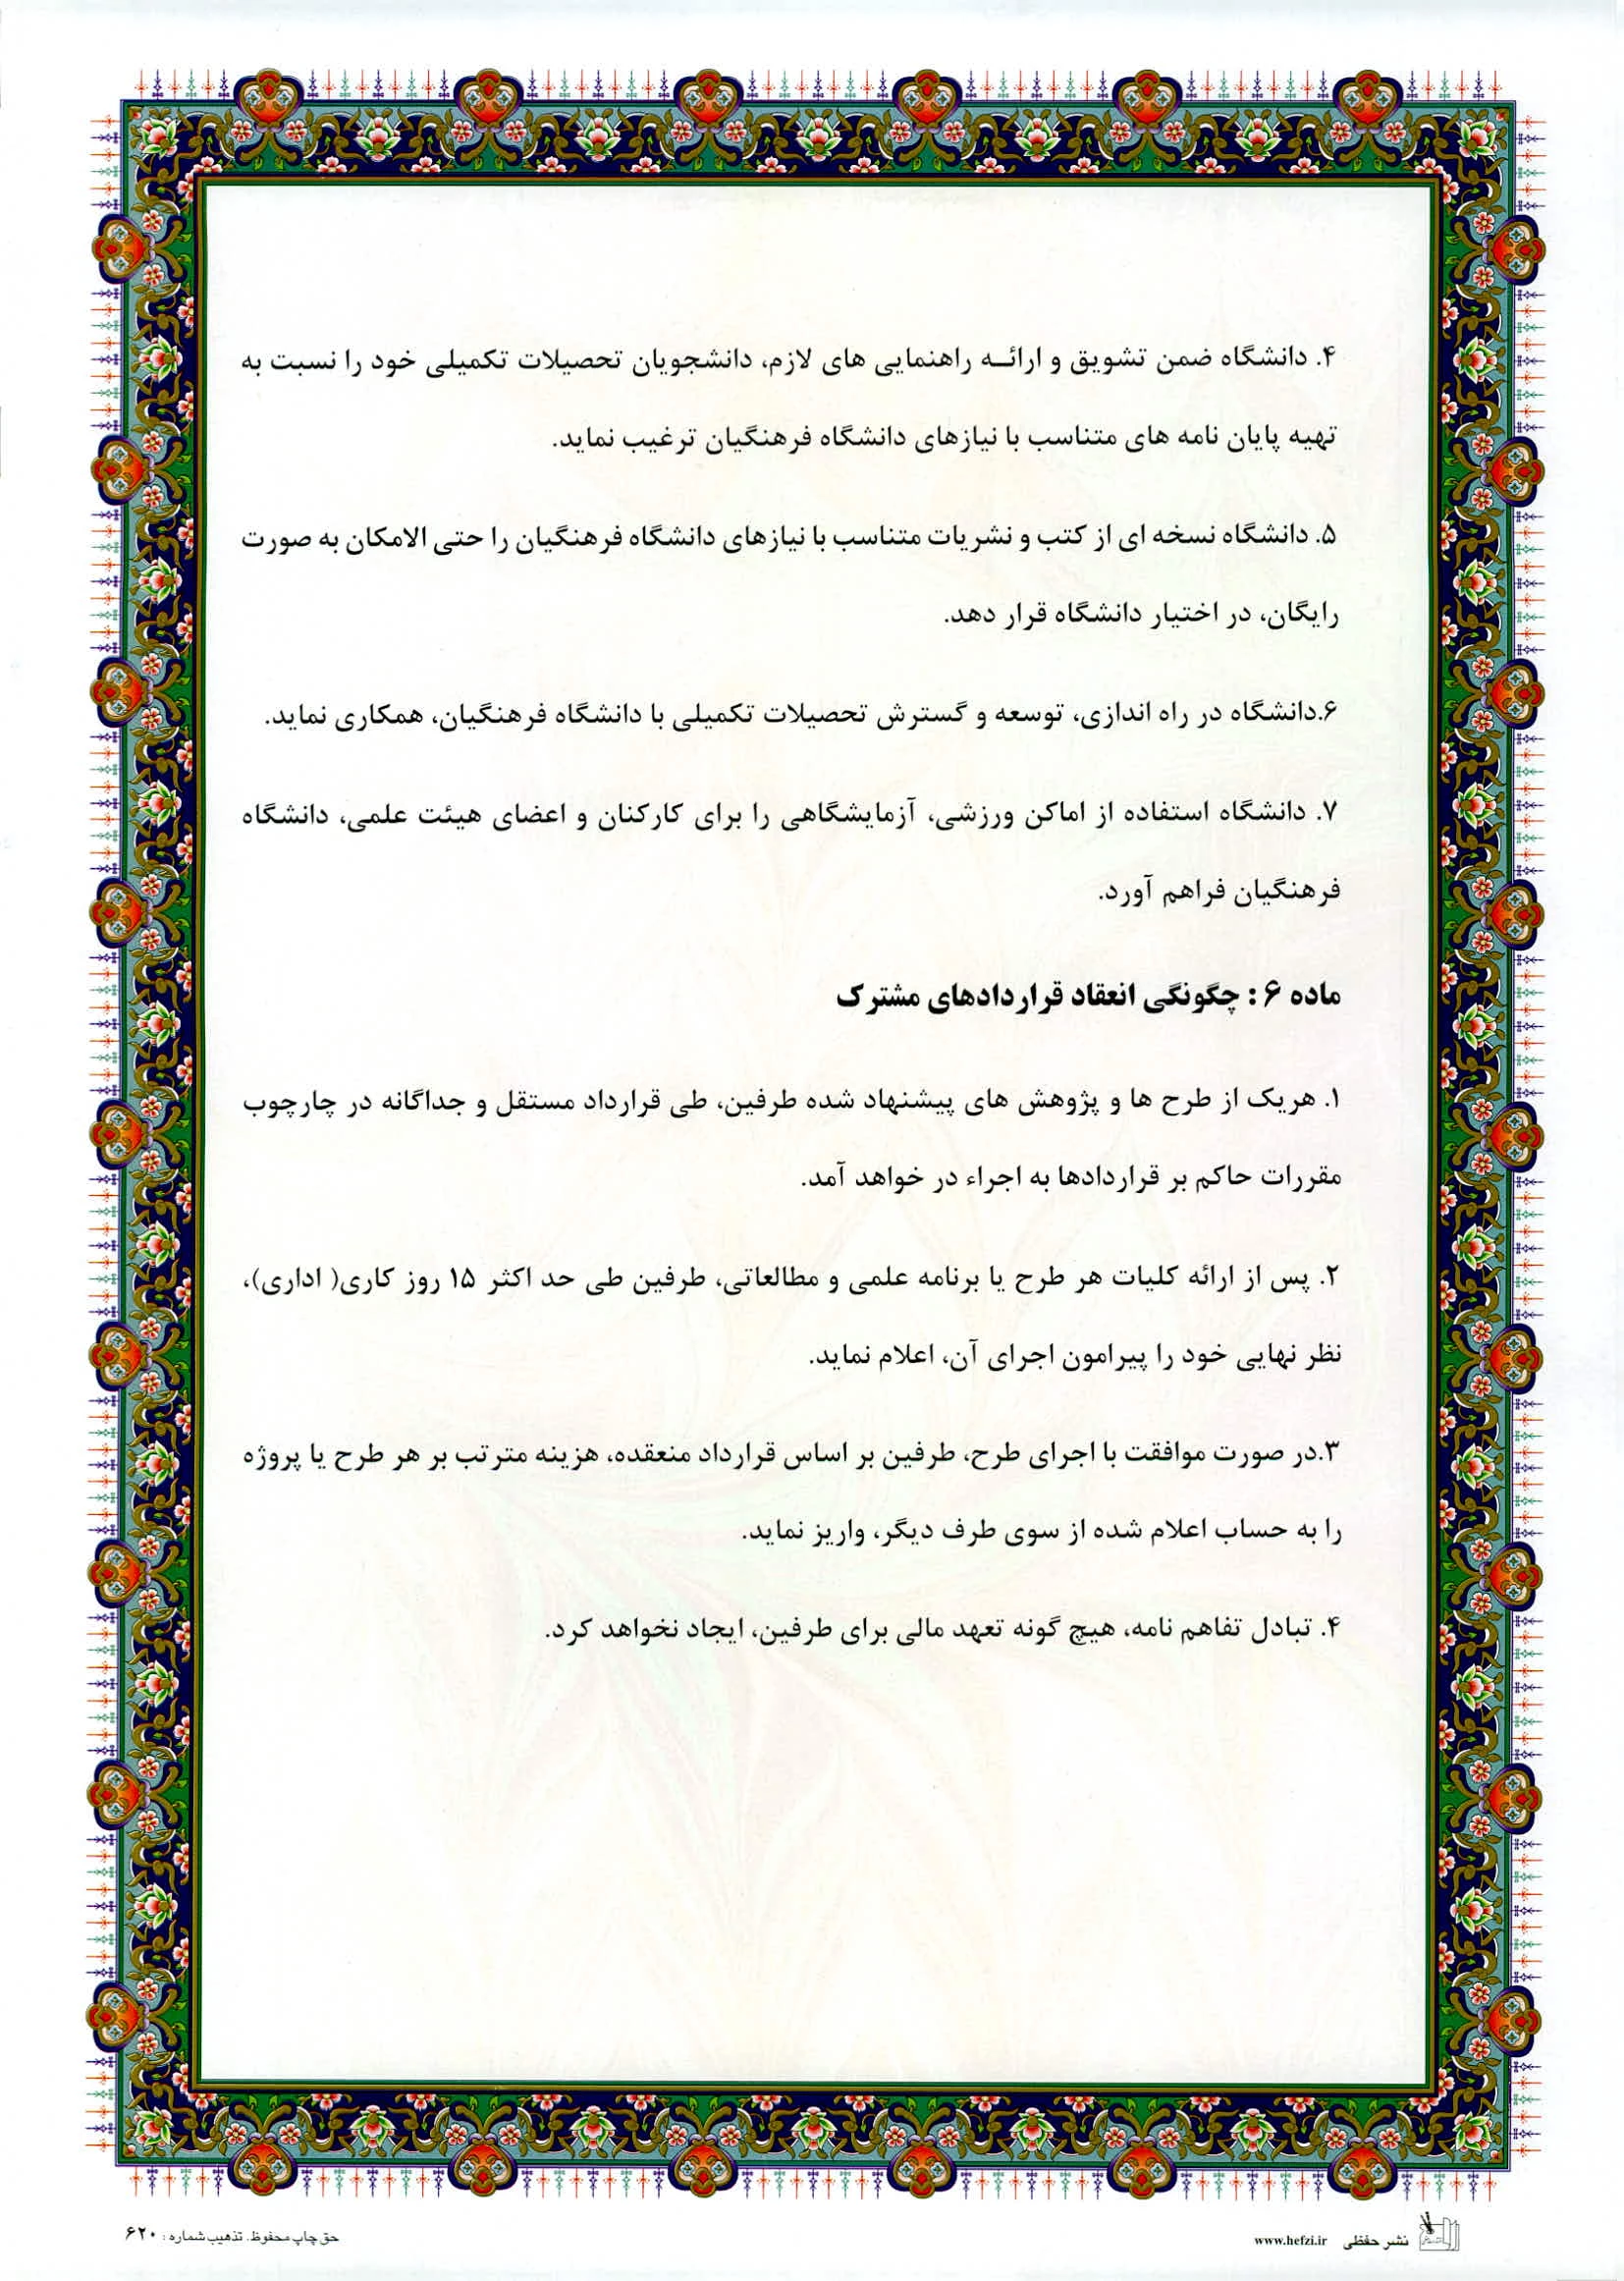 ۴. دانشگاه ضمن تشویق و ارائه راهنمایی های لازم، دانشجویان تحصیلات تکمیلی خود را نسبت به
تهیه پایان نامه های متناسب با نیازهای دانشگاه فرهنگیان ترغیب نماید.
۵. دانشگاه نسخه ای از کتب و نشریات متناسب با نیازهای دانشگاه فرهنگیان را حتی الامکان به صورت
رایگان، در اختیار دانشگاه قرار دهد.
۶.دانشگاه در راه اندازی، توسعه و گسترش تحصیلات تکمیلی با دانشگاه فرهنگیان، همکاری نماید.
۷. دانشگاه استفاده از اماکن ورزشی، آزمایشگاهی را برای کارکنان و اعضای هیئت علمی، دانشگاه
فرهنگیان فراهم آورد.
ماده ۶ : چگونگی انعقاد قراردادهای مشترک
۱. هریک از طرح ها و پژوهش های پیشنهاد شده طرفین، طی قرارداد مستقل و جداگانه در چارچوب
مقررات حاکم بر قراردادها به اجراء در خواهد آمد.
۲. پس از ارائه کلیات هر طرح یا برنامه علمی و مطالعاتی، طرفین طی حد اکثر ۱۵ روز کاری( اداری)،
نظر نهایی خود را پیرامون اجرای آن، اعلام نماید.
۳.در صورت موافقت با اجرای طرح، طرفین بر اساس قرارداد منعقده، هزینه مترتب بر هر طرح یا پروژه
را به حساب اعلام شده از سوی طرف دیگر، واریز نماید.
۴. تبادل تفاهم نامه، هیچ گونه تعهد مالی برای طرفین، ایجاد نخواهد کرد.
نشر حفظی www.hefzi.ir
حق چاپ محفوظ. تذهیب شماره : ۶۲۰